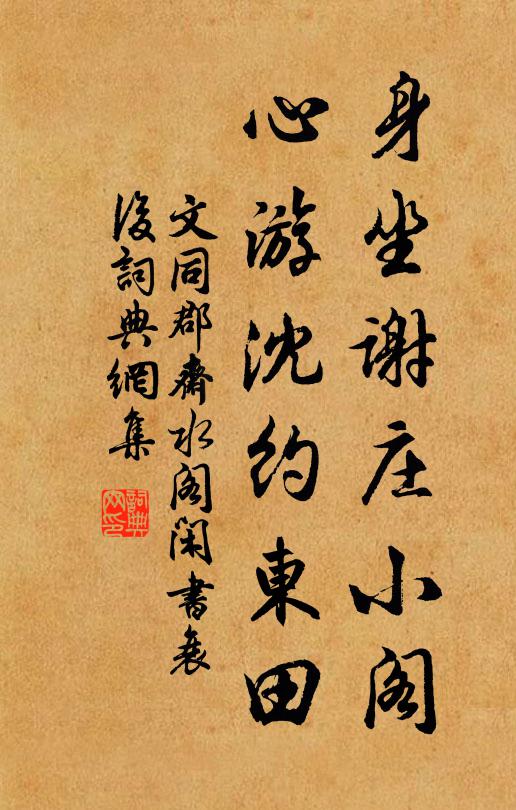 身坐谢庄小阁
心游沈约東田
文同郡齋水阁閑書衰
後詞典網集
詞典
网印